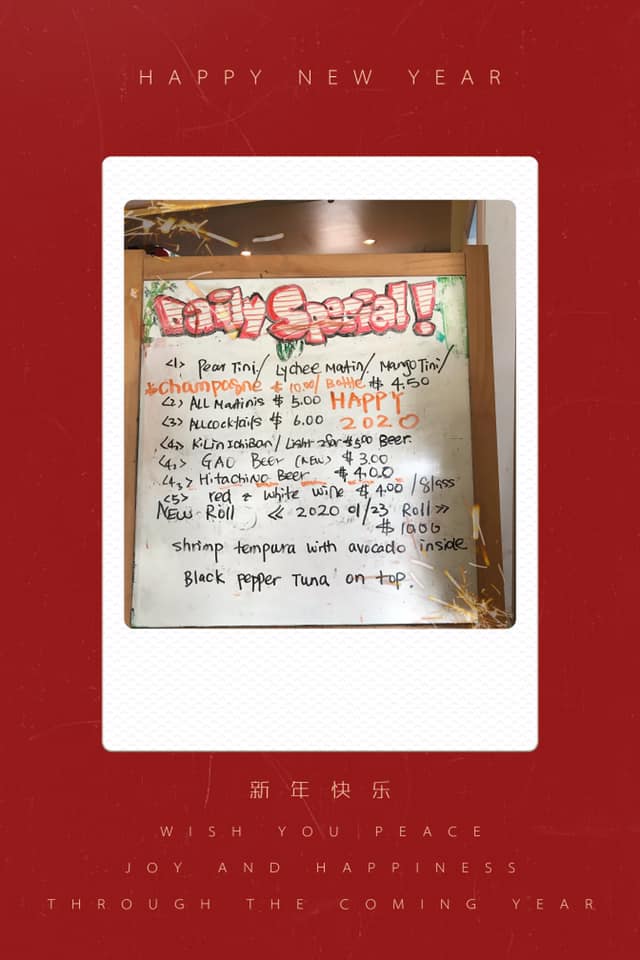 HAPPY NEW YEAR
Daily Special!
<1> Pear Tini/ Lychee Matin/ Mango Tini/
*Champagne $ 10.00/ Bottle $ 4.50
<2> ALL Martinis $ 5.00 HAPPY
<3> All cocktails $ 6.00 2020
<4> KiLin Ichiban/ Light 2 for $5.00 Beer
<4> GAO Beer (NEW) $ 3.00
<4> Hitachino Beer $ 4.00
<5> red & white wine $ 4.00 /Glass
New Roll << 2020 01/23 Roll >>
$ 10.00
shrimp tempura with avocado inside
Black pepper Tuna on top.
新年快乐
WISH YOU PEACE
JOY AND HAPPINESS
THROUGH THE COMING YEAR